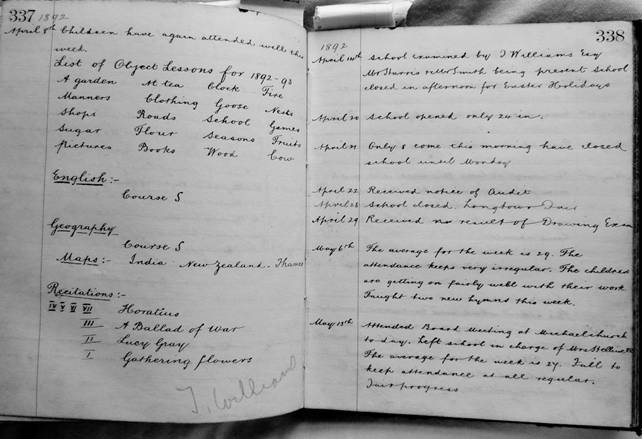 337
1892
April 8th Children have again attended well this
week.
List of Object Lessons for 1892-93
A garden At tea Clock Fire
Manners Clothing Goose Nests
Shops Roads School Games
Sugar Flour Seasons Fruits
Pictures Books Wood Cow
English:-
Course S
Geography
Course S
Maps:- India New Zealand Thames
Recitations:-
IV V VI VII Horatius
III A Ballad of War
II Lucy Gray
I Gathering flowers
T. William
338
1892
April 14th School examined by T Williams Esq
Mr Harris & Mr Smith being present School
closed in afternoon for Easter Holidays
April 20 School opened only 24 in.
April 21 Only 8 come this morning have closed
school until Monday
April 22 Received notice of Audit
April 28 School closed. Longtown Fair
April 29 Received no result of Drawing Exam
May 6th The average for the week is 29. The
attendance keeps very irregular. The children
are getting on fairly well with their work
Taught two new hymns this week.
May 13th Attended Board Meeting at Michaelchurch
to day. Left school in charge of Mrs
The average for the week is 27. Fail to
keep attendance at all regular.
Fair progress